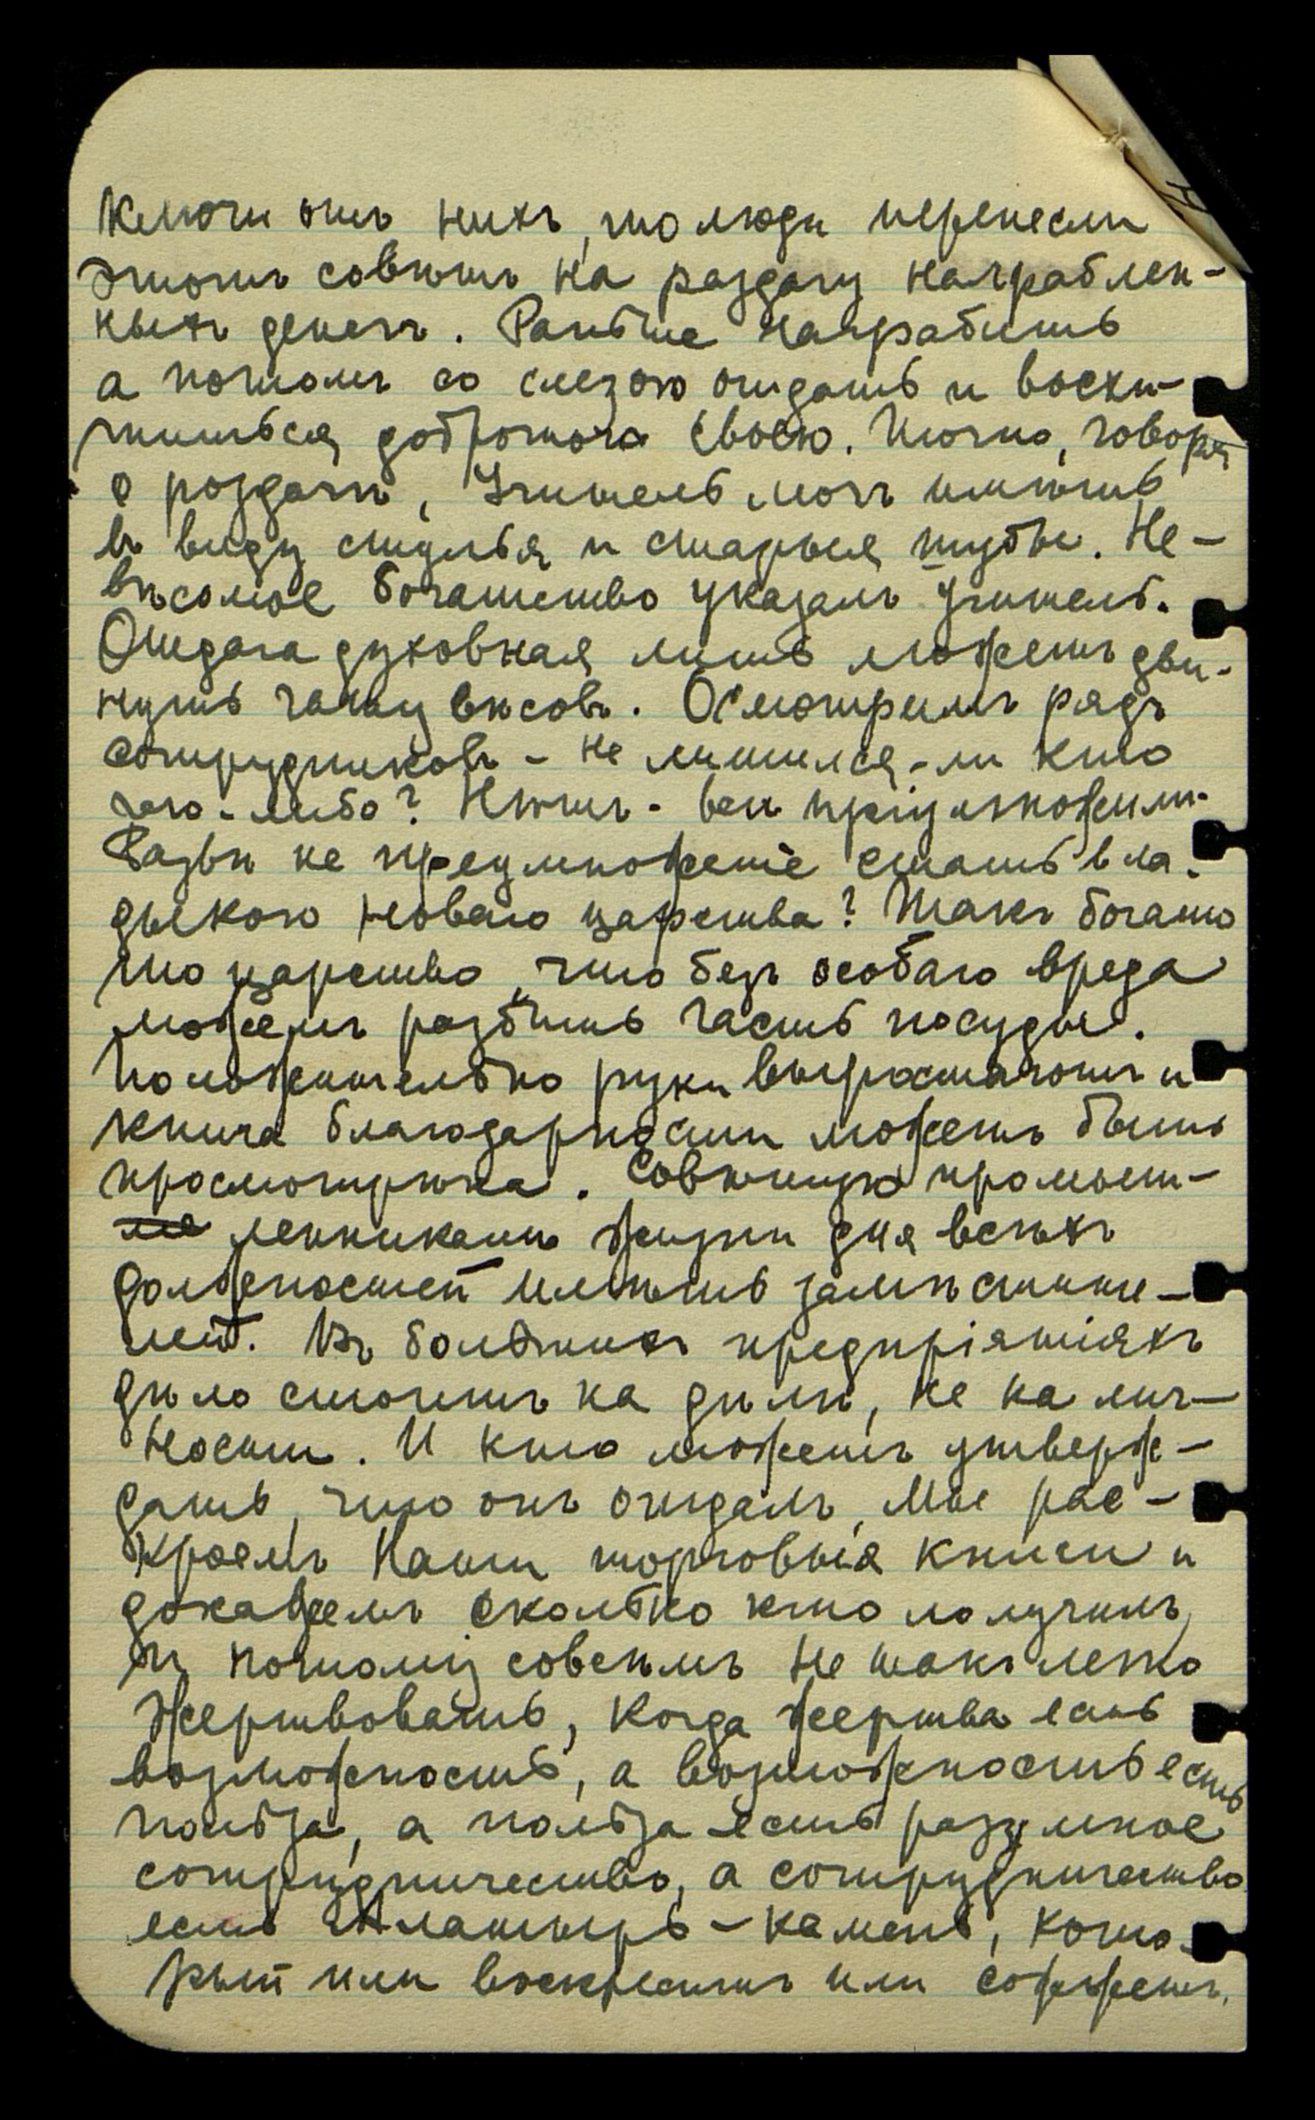 Ключи отъ нихъ, то люди перенесли
этотъ совѣтъ на раздачу награблен-
ныхъ денегъ. Раньше награбить
а потомъ со слезою отдать и восхи-
титься добротою своею. Точно, говоря
о раздачѣ, Учитель могъ имѣть
въ виду стулья и старыя шубы. Не-
вѣсомое богатство указалъ Учитель.
Отдача духовная лишь можетъ дви-
нуть чашу вѣсовъ. Осмотримъ рядъ
сотрудниковъ - не лишился-ли кто
чего-либо? Нѣтъ - всѣ пріумножили.
Развѣ не преумноженіе стать вла-
дыкою новаго царства? Такъ богато
то царство, что безъ особаго вреда
можемъ разбить часть посуды.
Положительно руки выростаютъ и
книга благодарности можетъ быть
просмотрѣна. Совѣтую промыш-
ленникамъ жизни для всѣхъ
должностей имѣть замѣстите-
лей. Въ большихъ предпріятіяхъ
дѣло стоитъ на дѣлѣ, не на лич-
ности. И кто можетъ утверж-
дать, что онъ отдалъ, Мы рас-
кроемъ Наши торговыя книги и
докажемъ сколько кто получилъ,
и потому совсѣмъ не такъ легко
жертвовать, когда жертва есть
возможность, а возможность есть
польза, а польза есть разумное
сотрудничество, а сотрудничество
есть Алатырь-камень, кото-
рый или воскреситъ или сожжетъ.